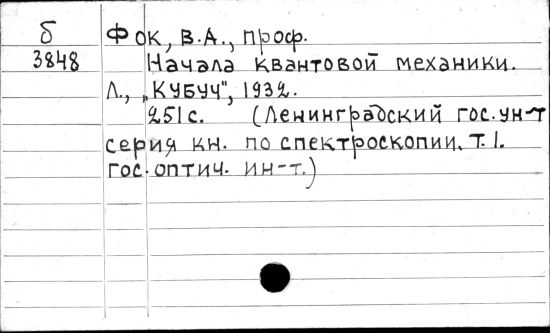 б Фок, В.А., проф.
3848 Начала квантовой механики.
Л., „КУБУЧ", 1932.
251 с. (Ленинградский гос. ун-т
серия кн. по спектроскопии. Т. 1.
гос. оптич. ин-т.)